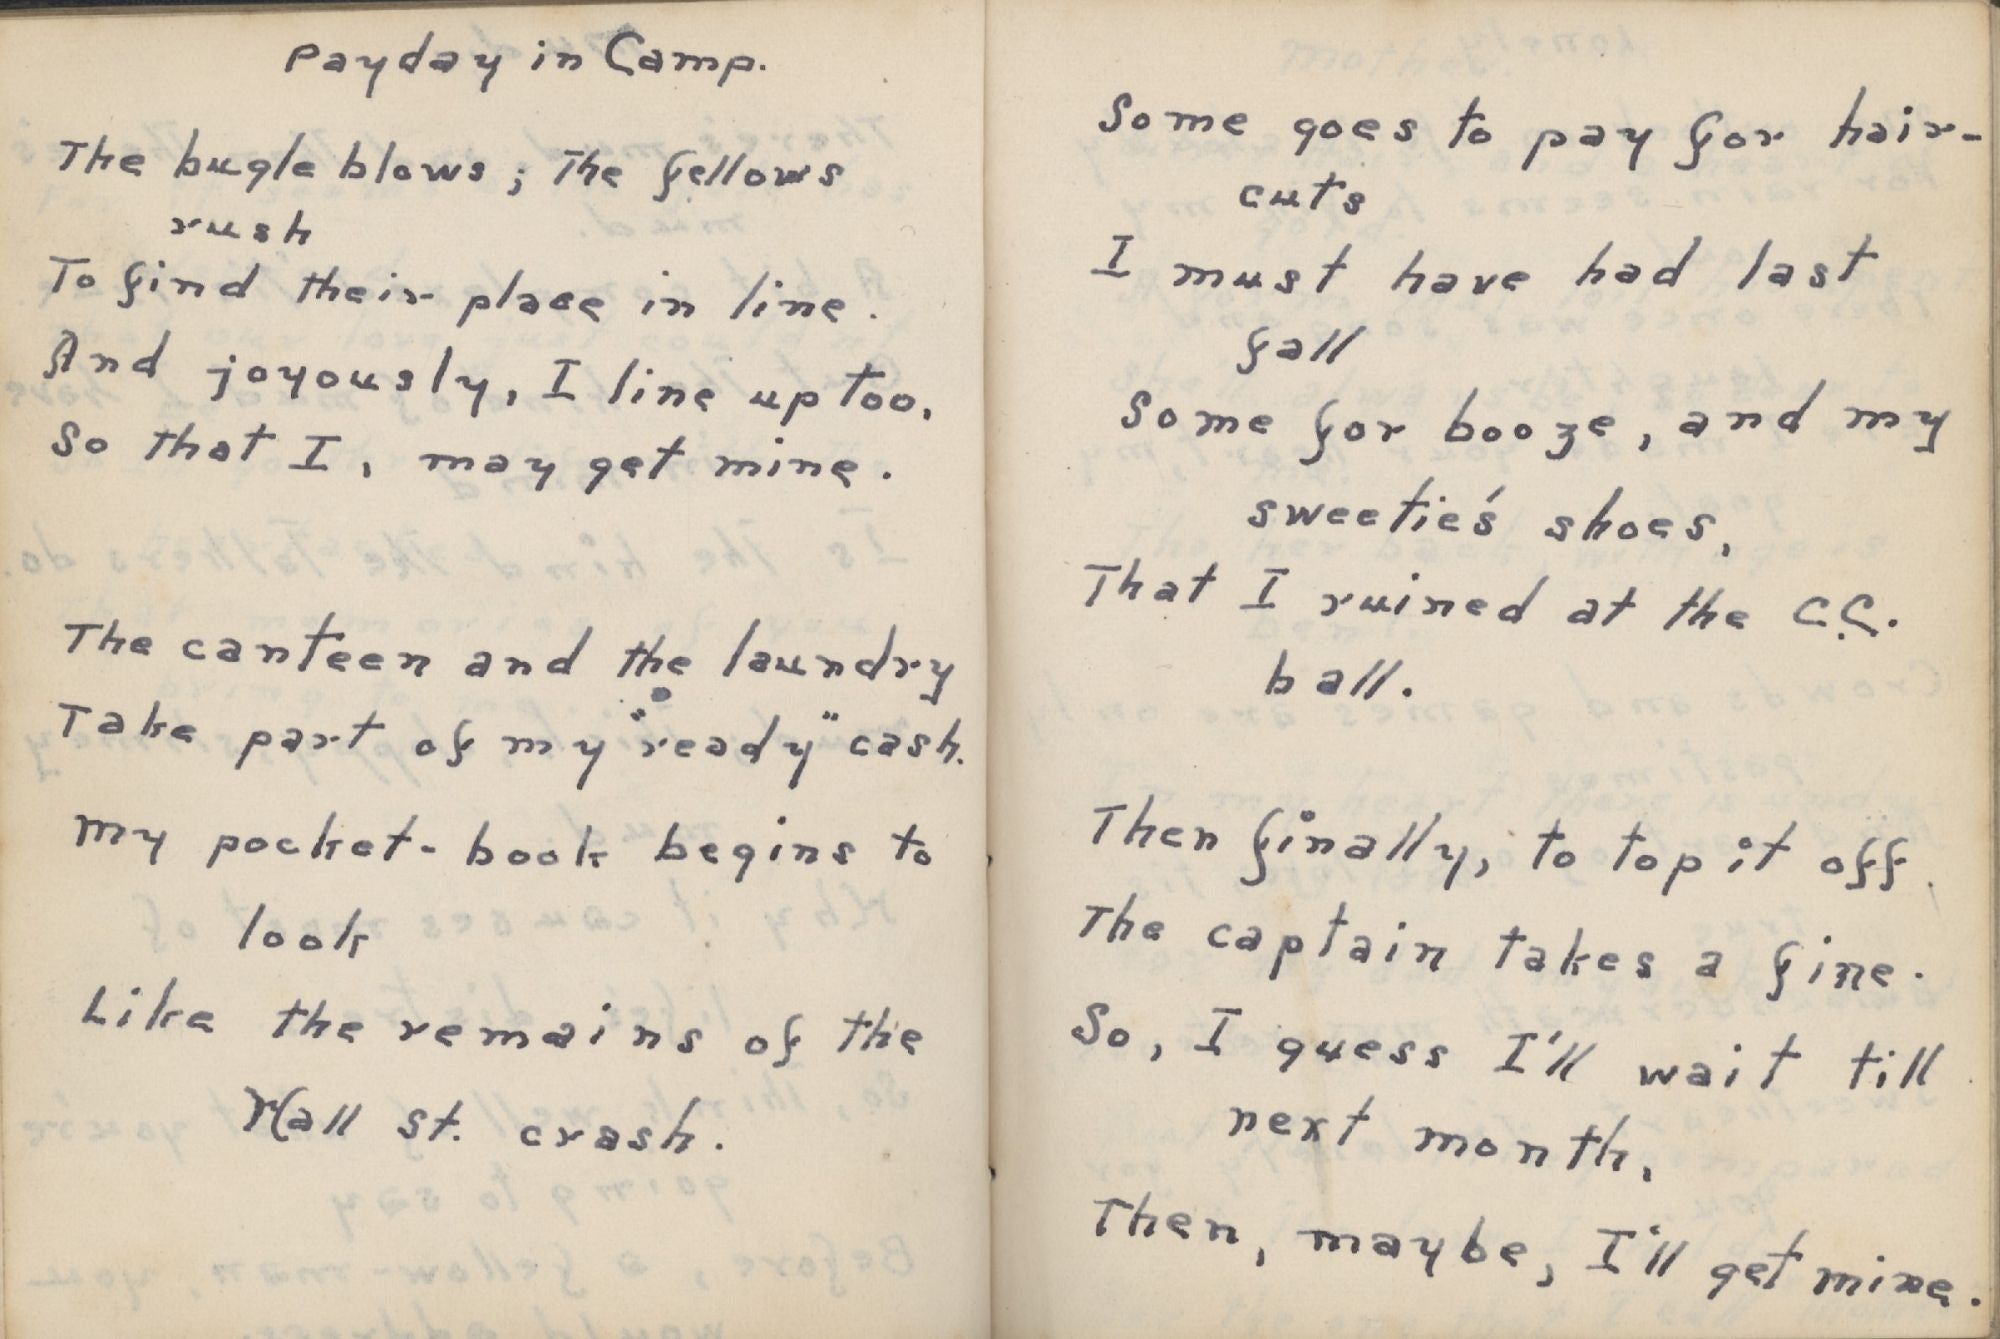 Payday in Camp.
The bugle blows; The fellows
rush
To find their place in line.
And joyously, I line up too,
So that I, may get mine.
The canteen and the laundry
Take part of my "ready" cash.
My pocket-book begins to
look
Like the remains of the
Wall St. crash.
Some goes to pay for hair-
cuts
I must have had last
fall
Some for booze, and my
sweetie's shoes,
That I ruined at the C.C.
ball.
Then finally, to top it off,
The captain takes a fine.
So, I guess I'll wait till
next month,
Then, maybe, I'll get mine.